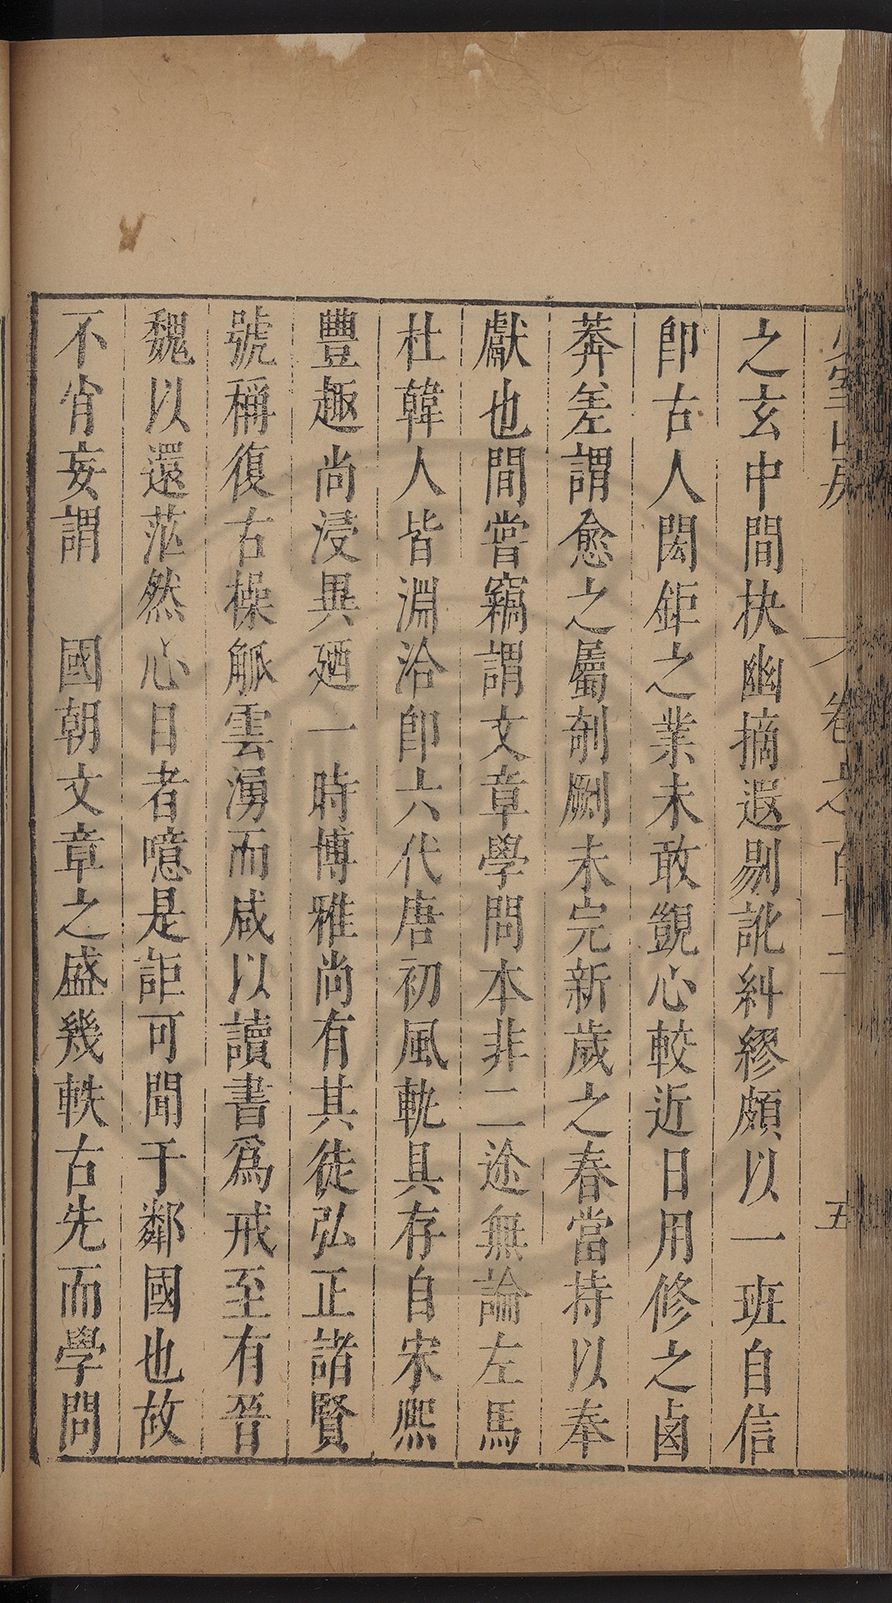 少室山房 卷之百十二 五
之玄中間抉幽摘遐剔訛糾繆頗以一班自信
卽古人閎鉅之業未敢覬心較近日用修之鹵
莽差謂愈之屬剞劂未完新歲之春當持以奉
獻也間嘗竊謂文章學問本非二途無論左馬
杜韓人皆淵洽卽六代唐初風軌具存自宋熙
豐趣尚浸異廼一時博雅尚有其徒弘正諸賢
號稱復古操觚雲湧而咸以讀書爲戒至有晉
魏以還茫然心目者噫是詎可聞于鄰國也故
不肖妄謂 國朝文章之盛幾軼古先而學問